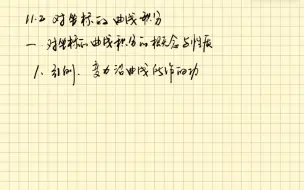 11.2 对坐标的曲线积分
一 对坐标的曲线积分的概念与性质
1. 引例. 变力沿曲线所作的功